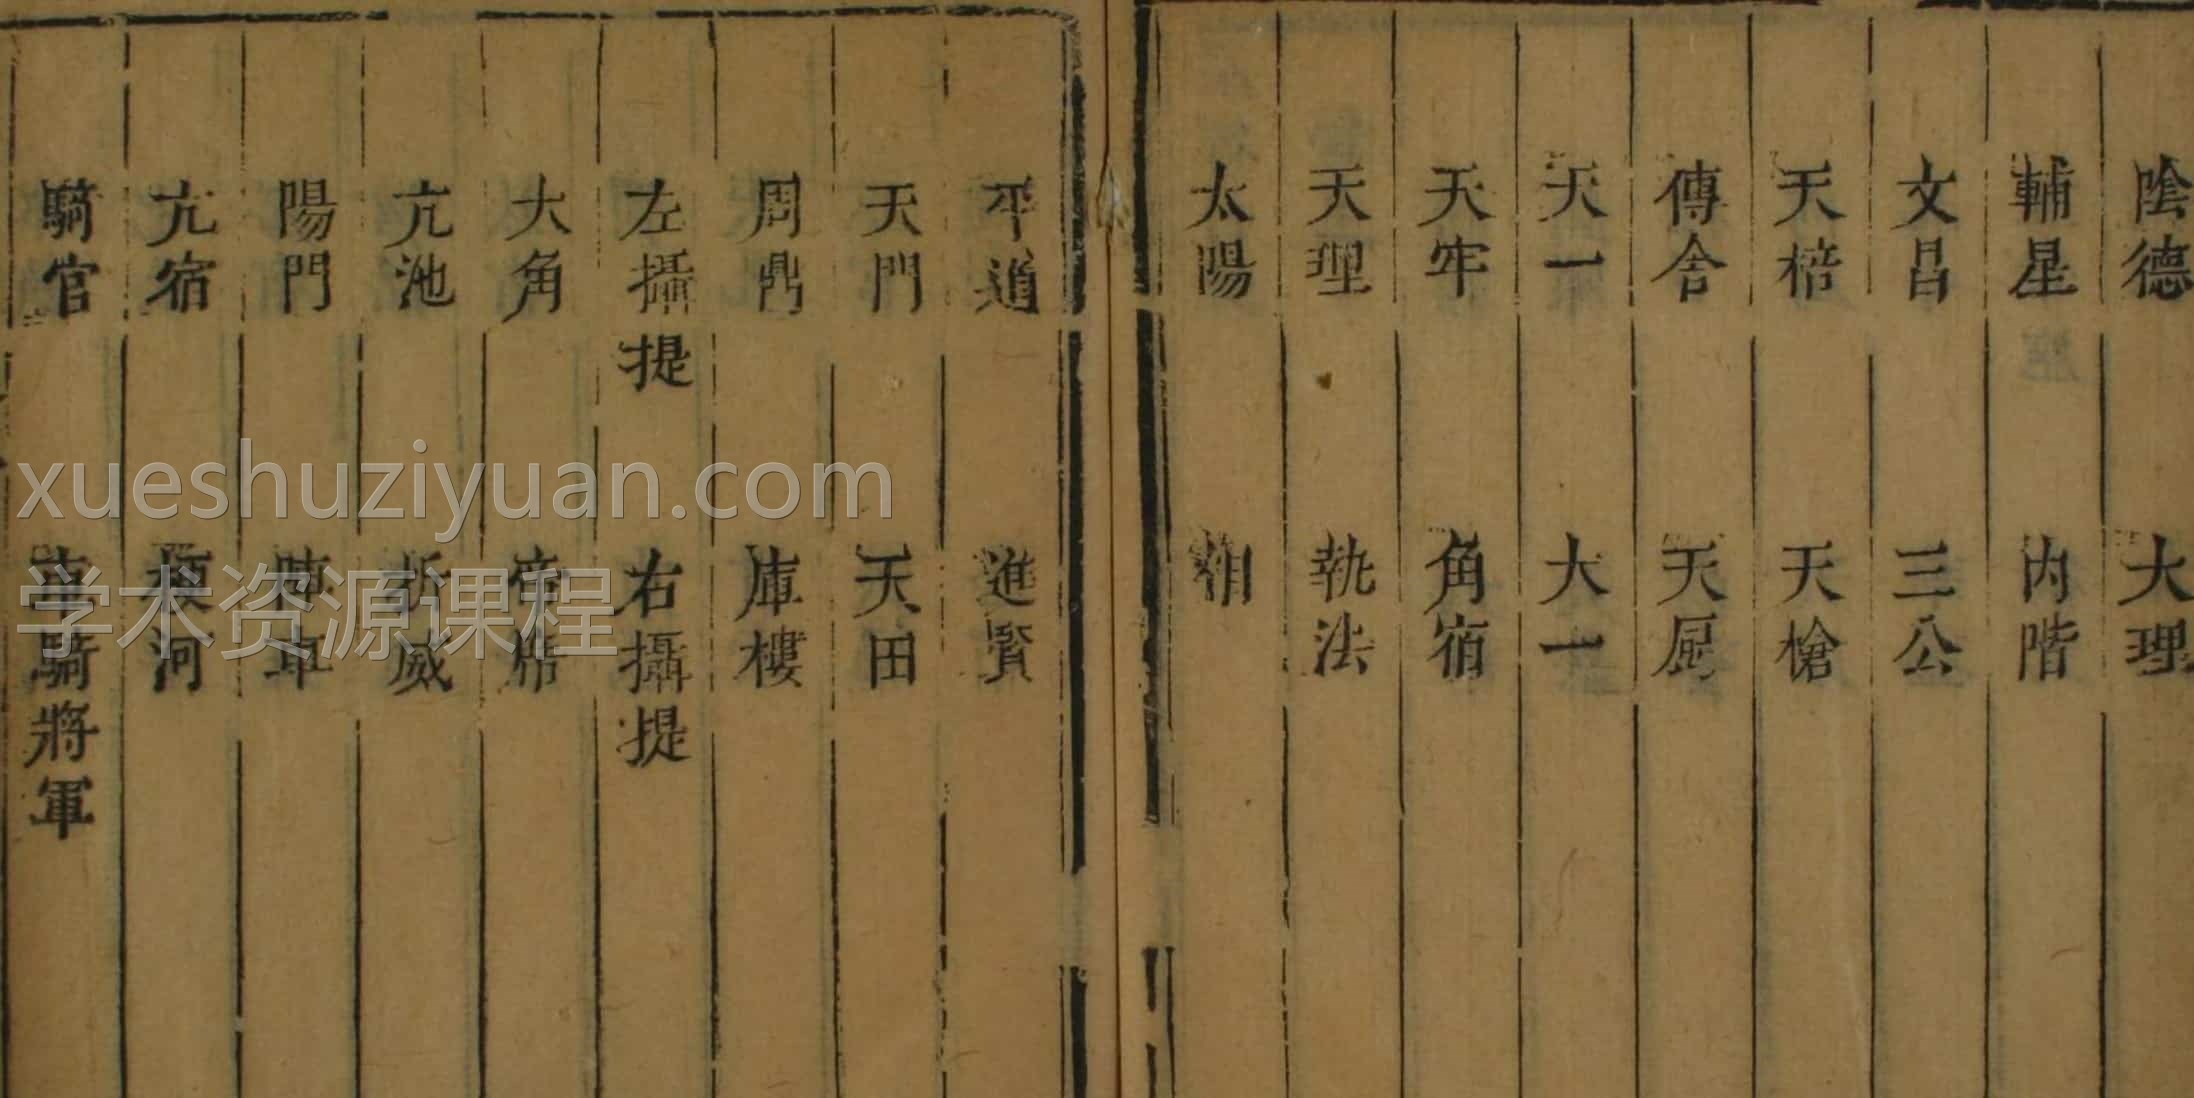 陰德 大理
輔星 内階
文昌 三公
天棓 天槍
傳舍 天厨
天一 大一
天牢 角宿
天理 執法
太陽 相
平道 進賢
天門 天田
周鼎 庫樓
左攝提 右攝提
大角 帝席
亢池 折威
陽門 陣車
亢宿 梗河
騎官 車騎將軍
xueshuziyuan.com
学术资源课程